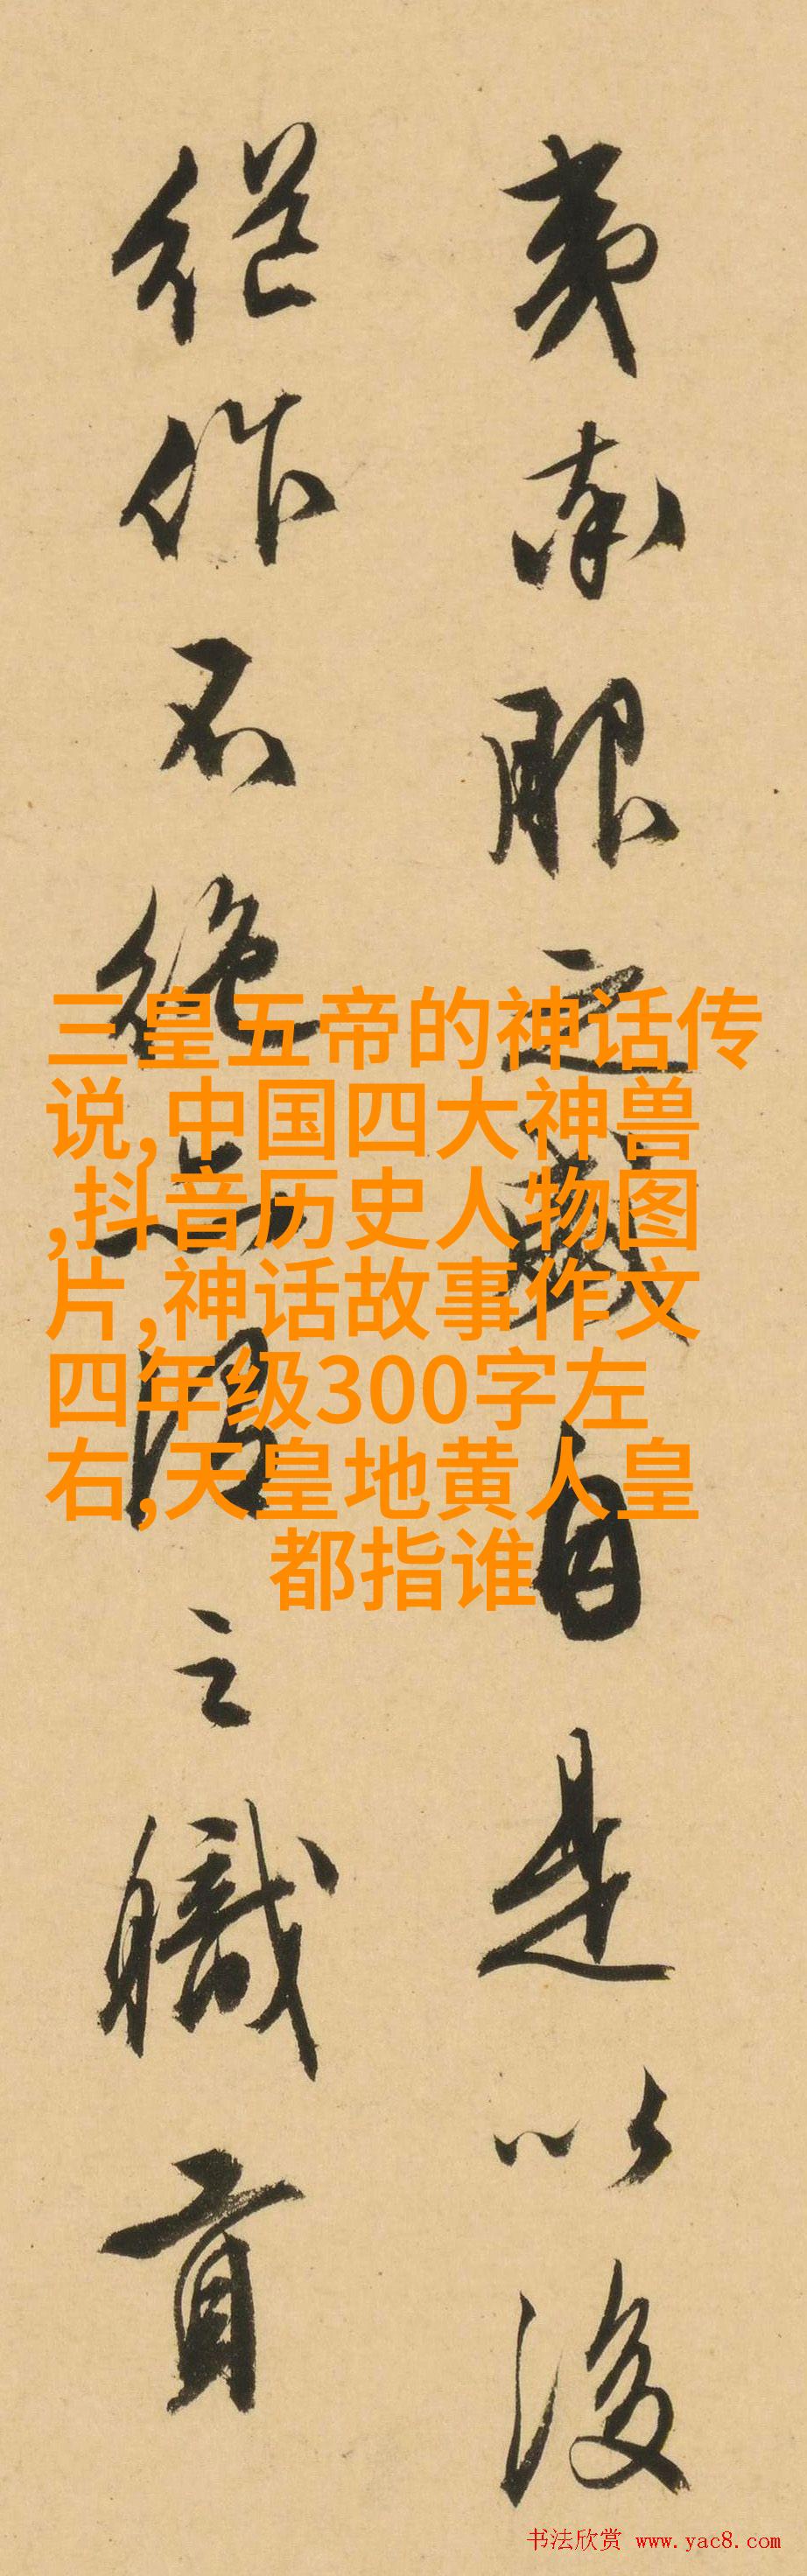 夷率服之盛自是以後
繼作不絶謂之職貢
三皇五帝的神话传
说,中国四大神兽
,抖音历史人物图
片,神话故事作文
四年级300字左
右,天皇地黄人皇
都指谁
书法欣赏 www.yac8.com